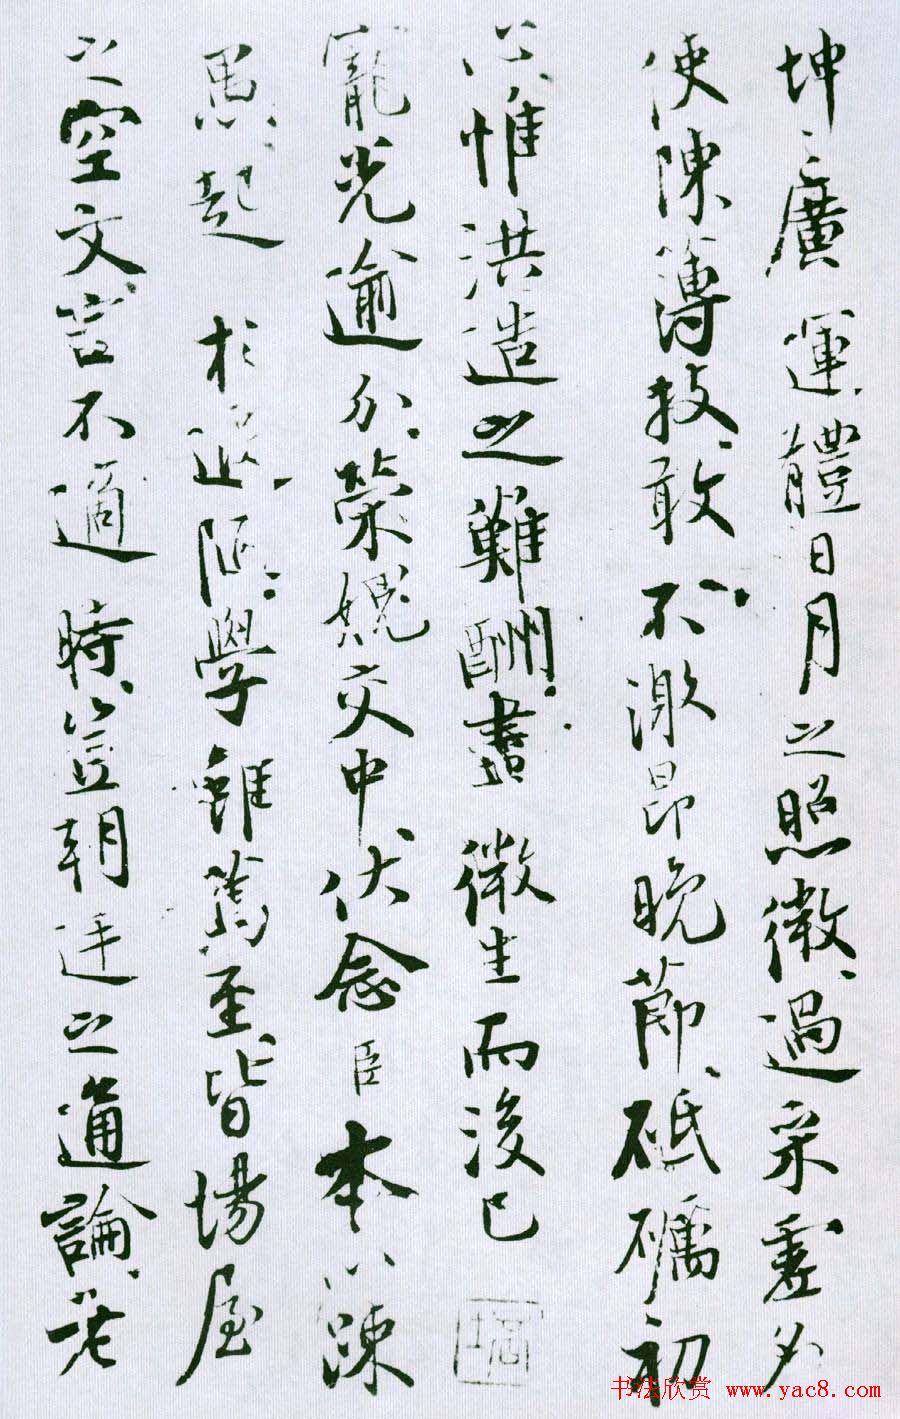 坤之廣運體日月之照微過采虛名
使陳薄技敢不激昂晚節砥礪初
心惟洪造之難酬盡微生而後已
寵光逾分榮媿交中伏念臣本以陳
愚起於遐陬學雖篤至皆場屋
之空文言不適時豈朝廷之通論老
书法欣赏 www.yac8.com